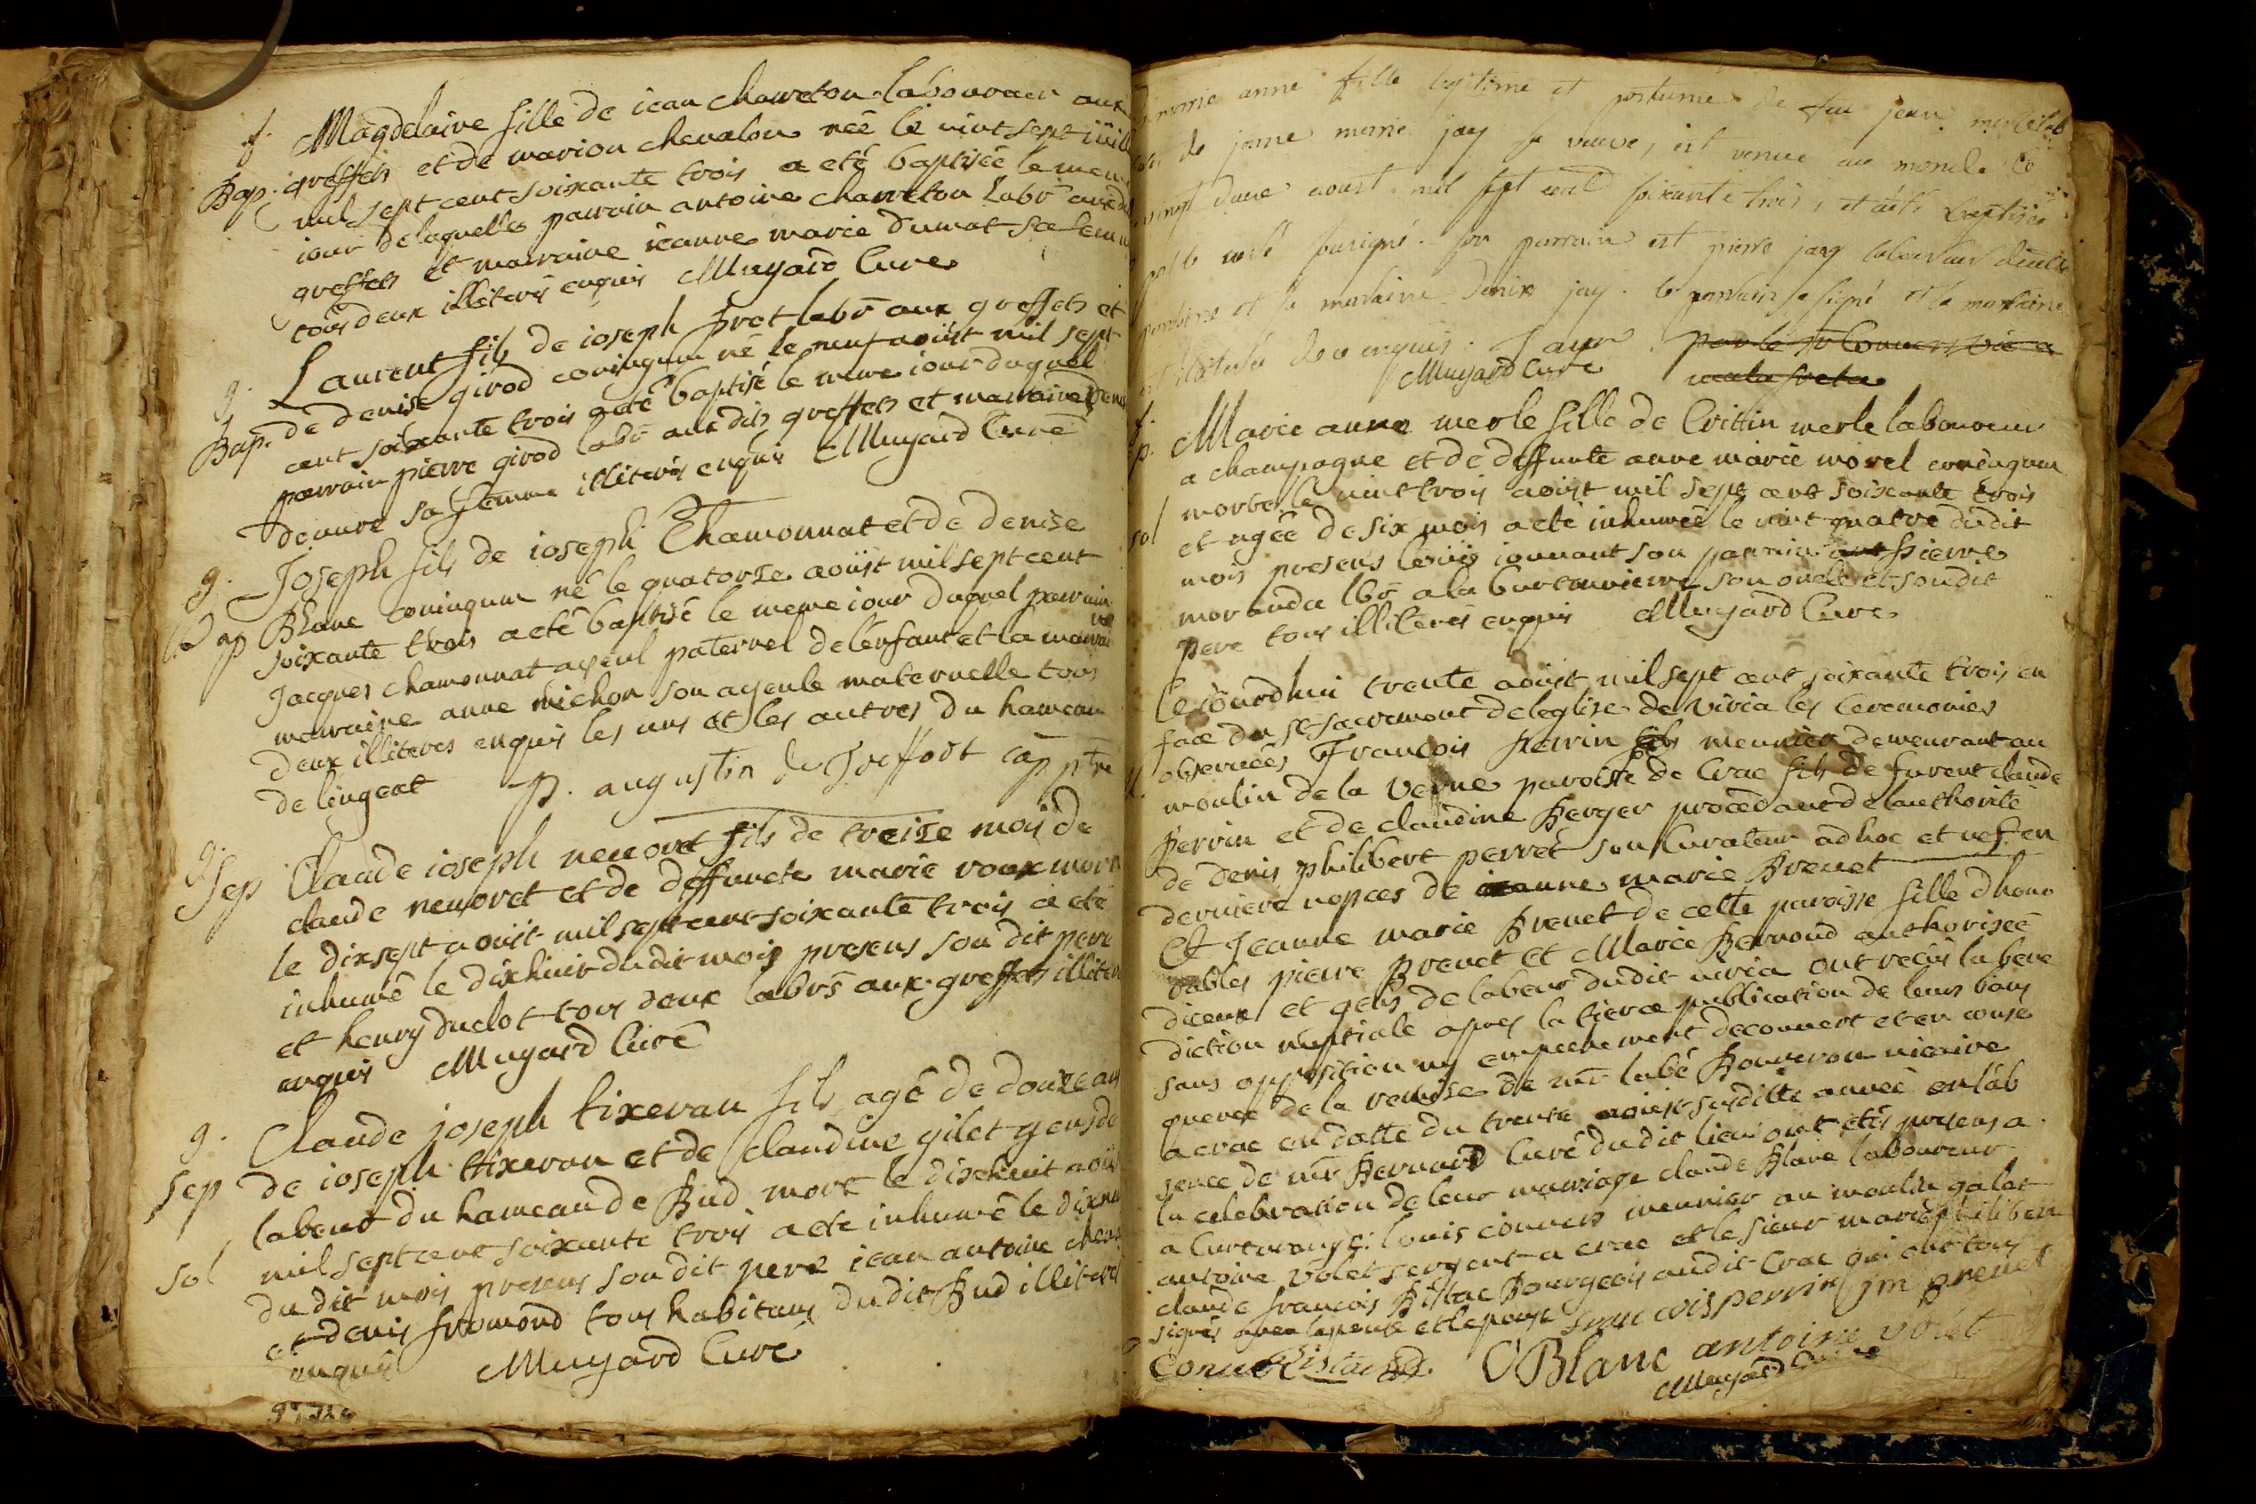 f. Magdelaine fille de iean charreton laboureur aux
Bap. greffets et de marion chevalon née le vint sept iüill
mil sept cent soixante trois a eté baptisée le meme
iour de laquelle parrain antoine charreton labr auxd
greffets et marraine ieanne marie dumat sa femme
tous deux illiterés enquis Muyard Curé
g. Laurent fils de ioseph prot labr aux greffets et
Bap. de denise girod coniugum né le neuf aoüst mil sept
cent soixante trois a eté baptisé le meme iour duquel
parrain pierre girod labr auxdits greffets et marraine
sa femme illiterés enquis Muyard Curé
g. Joseph fils de ioseph Chamonnat et de denise
Bap Blanc coniugum né le quatorze aoüst mil sept cent
soixante trois a eté baptisé le meme iour duquel parrain
Jacques chamonnat ayeul paternel de lenfant et la
marraine anne michon son ayeule maternelle tous
deux illiteres enquis les uns et les autres du hameau
de lingeat P. augustin de Treffort cap ptre
g. Claude ioseph renoret fils de treize mois de
Sep claude renoret et de deffuncte marie roux mort
le dixsept aoust mil sept cent soixante trois a eté
inhumé le dixhuit dudit mois presens son dit pere
et henry duclot tous deux labrs aux greffets illiteres
enquis Muyard Curé
g. Claude joseph tixeran fils agé de douze ans
sep de ioseph tixeran et de claudine gilet gens de
labeur du hameau de Bud mort le dixhuit aoüst
sol mil sept cent soixante trois a eté inhumé le dixneu
du dit mois presens son dit pere iean antoine
et denis fromond tous habitans dudit Bud illiterés
enquis Muyard Curé
marie anne fille legitime et postume de feu jean
de janne marie jay sa veuve, est venue au monde le
vingt deux aoust mil sept cent soixante trois, et a été baptisée
par le curé sousigné. son parrain est pierre jay laboureur
et sa marraine denise jay. le parrain a signé et la marraine
illiterée de ce enquis. Jay
Muyard Curé
f. Marie anne merle fille de Crittin merle laboureur
p. a champagne et de deffunte anne marie morel coniugum
morte le vint trois aoüst mil sept cent soixante trois
sol et agée de six mois a eté inhumée le vint quatre dudit
mois presens loüis iournant son parrain pierre
morandu lbr a la son oncle et son dit
pere tous illiterés enquis Muyard Curé
le iourdhui trente aoüst mil sept cent soixante trois en
face du St sacrement de leglise de viria les Ceremonies
observées François perrin meunier demeurant au
moulin de la verne paroisse de Crac fils de furent claude
perrin et de claudine Berger procedant de lauthorité
de denis philibert perret son Curateur ad hoc et vef en
derniere nopces de ieanne marie Brenet
Et Jeanne marie Brenet de cette paroisse fille dhono
rables pierre Brenet et Marie Bernoud authorisée
diceux et gens de labeur dudit viria ont recüs la bene
diction nuptiale apres la tierce publication de leurs bans
sans opposition ny empechement decouvert et en conse
quence de la remise de mr labé Bouveron vicaire
a crac en datte du trente aoust susditte année en lab
sence de mr Bernard Curé dudit lieu ont étés presens a
la celebration de leur mariage claude Blanc laboureur
a Curtarange. louis conners meunier au moulin galat
antoine volet sergent a crac et le sieur marie philibert
claude françois Bistac Bourgeois audit Crac qui ont tous
signés avec lepouse et lepoux francois perrin jm Brenet
Coner Bistac C Blanc antoine volet
Muyard Curé